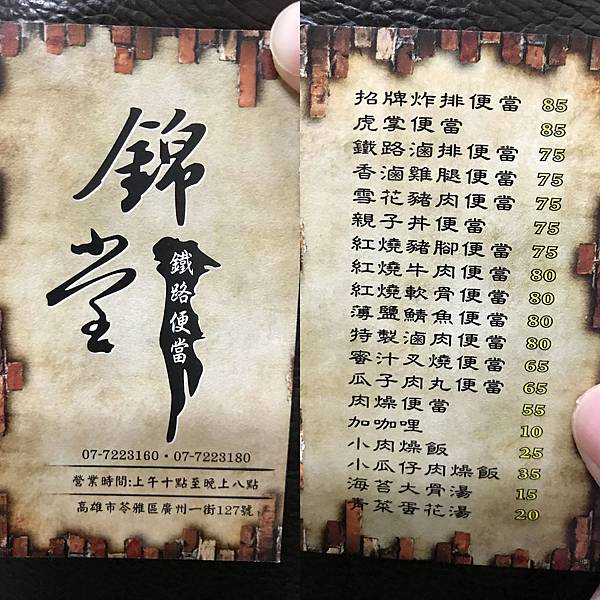 錦堂
鐵路便當
07-7223160·07-7223180
營業時間:上午十點至晚上八點
高雄市苓雅區廣州一街127號
招牌炸排便當 85
虎掌便當 85
鐵路滷排便當 75
香滷雞腿便當 75
雪花豬肉便當 75
親子丼便當 75
紅燒豬腳便當 75
紅燒牛肉便當 80
紅燒軟骨便當 80
薄鹽鯖魚便當 80
特製滷肉便當 80
蜜汁叉燒便當 65
瓜子肉丸便當 65
肉燥便當 55
加咖哩 10
小肉燥飯 25
小瓜仔肉燥飯 35
海苔大骨湯 15
青菜蛋花湯 20